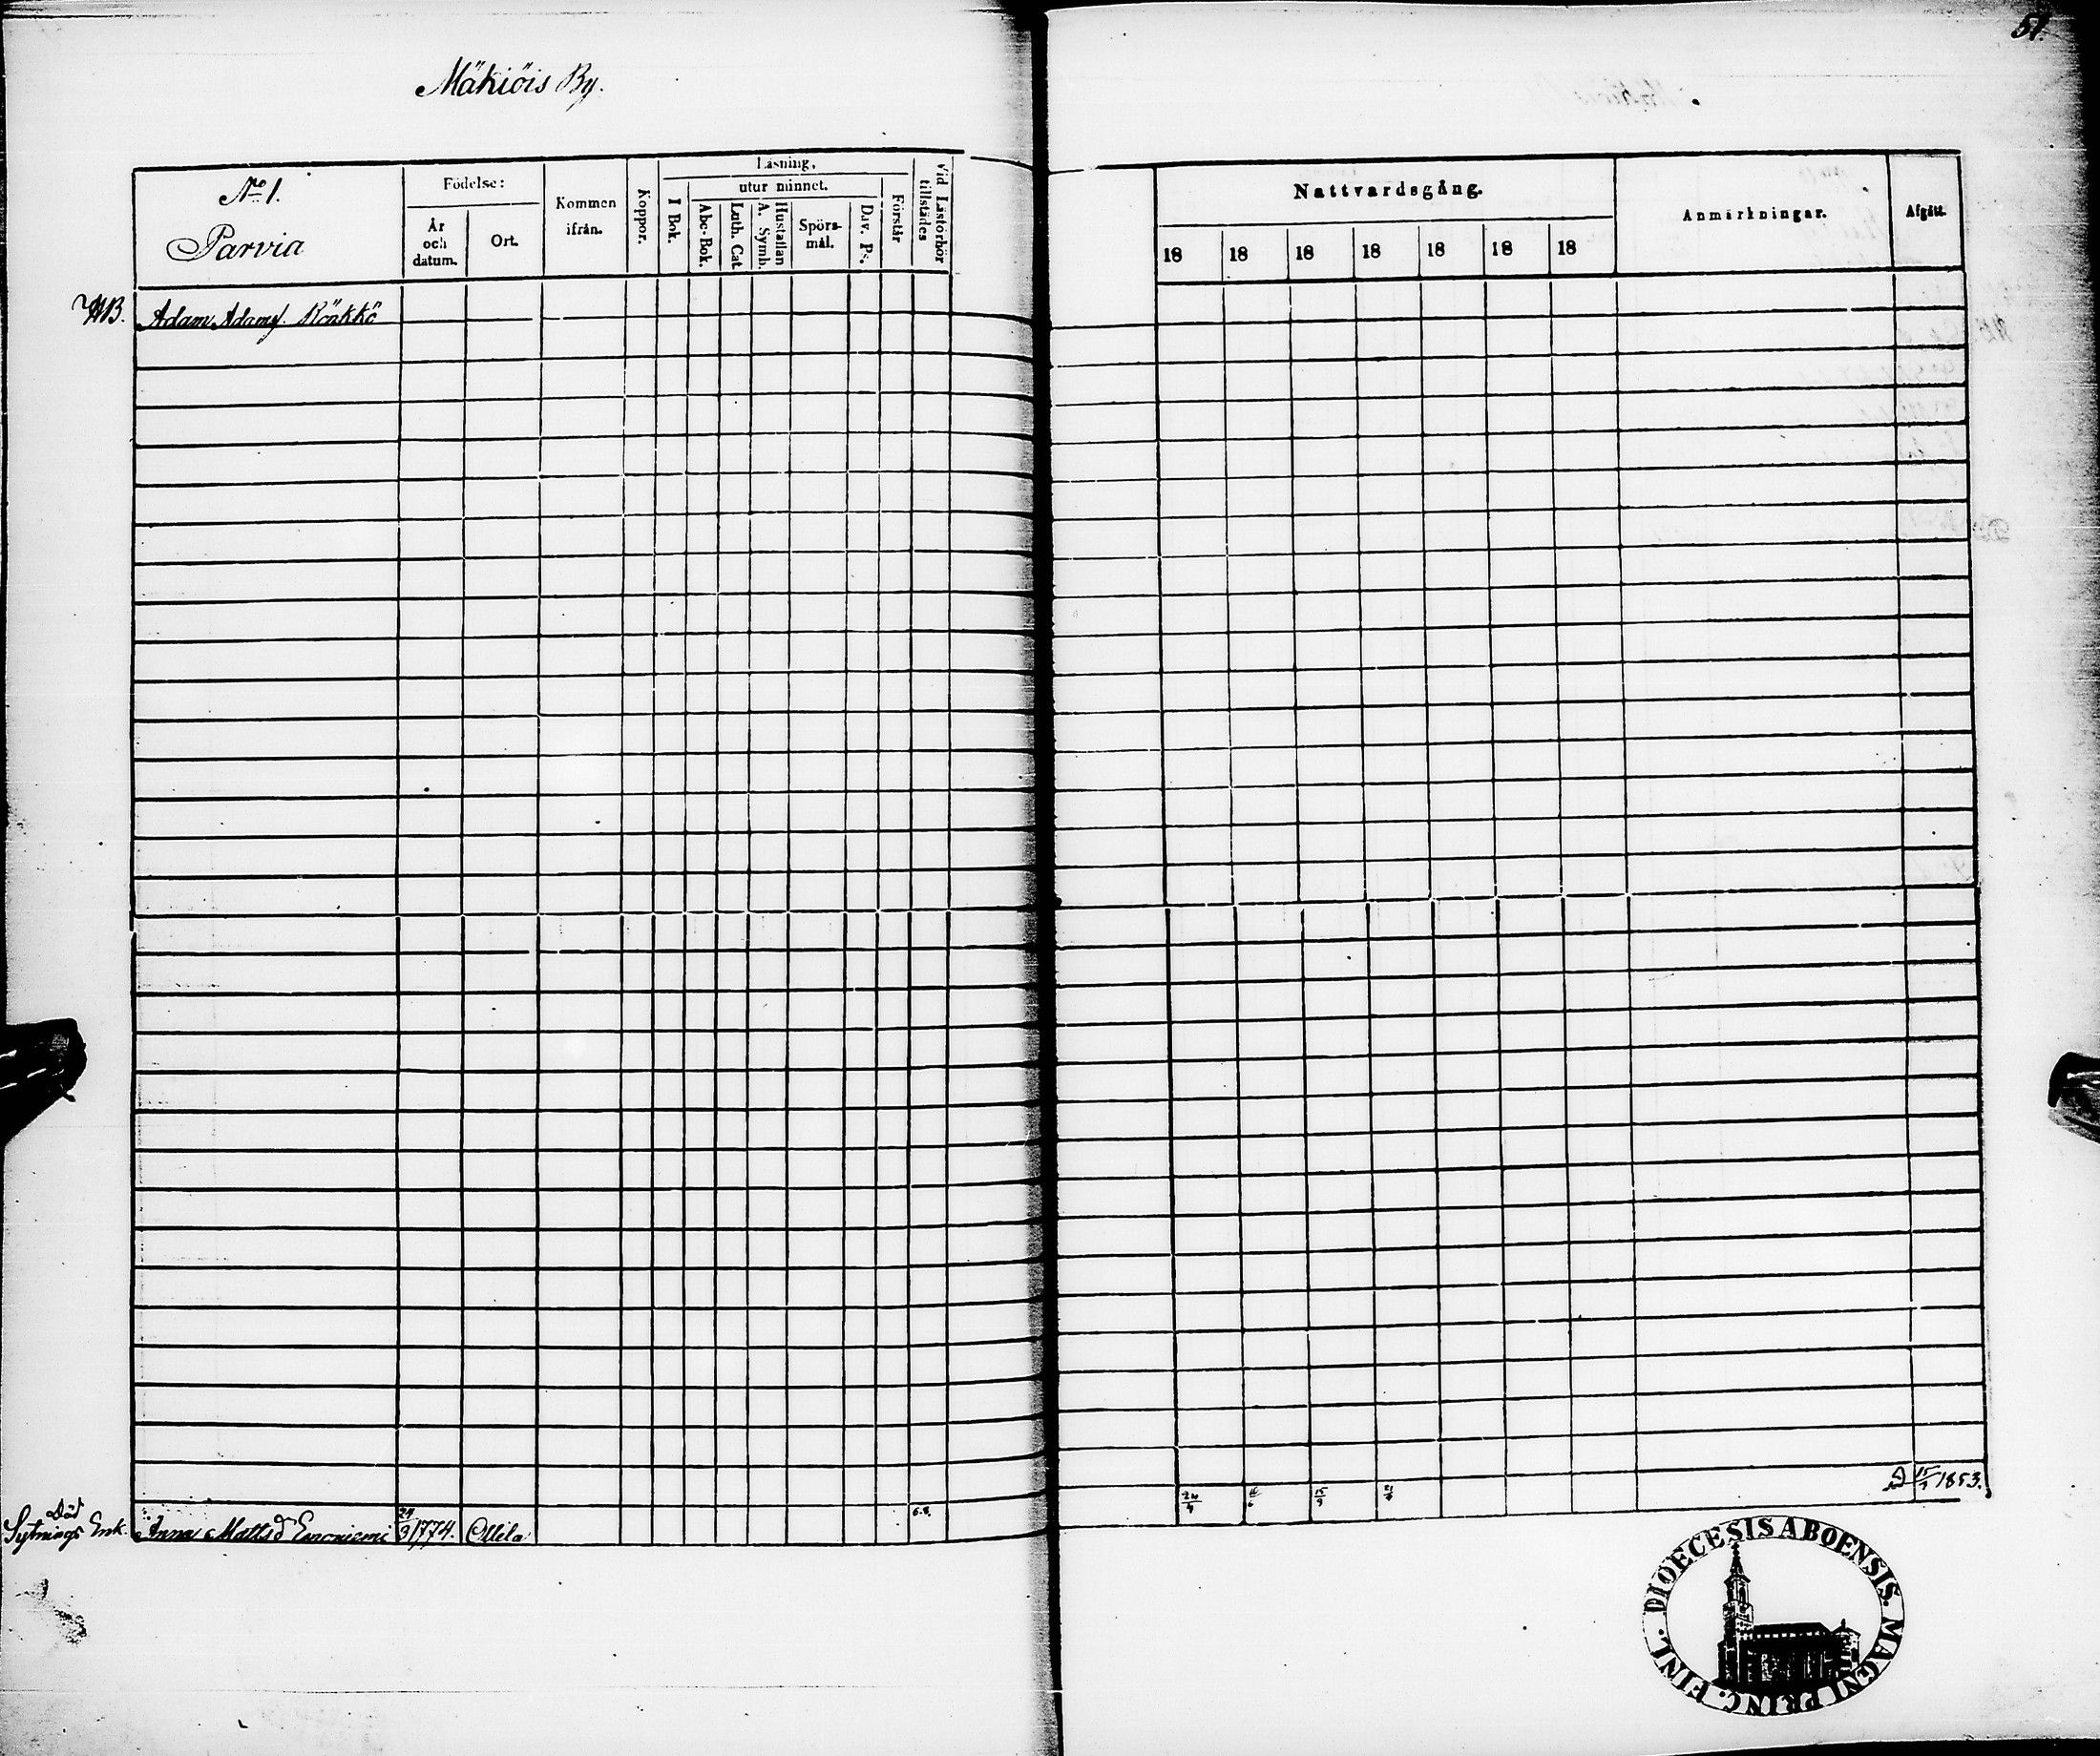 51.
Mäkiöis By.
No 1.
Parvia
Födelse:
År och datum.
Ort.
Kommen ifrån.
Koppor.
Läsning,
I Bok.
utur minnet.
Abc-Bok.
Luth. Cat.
A. Symb. Hustaflan
Spörsmål.
Dav. Ps.
Förstår
Vid Läsförhör tillstädes
Nattvardsgång.
18 18 18 18 18 18 18
Anmärkningar.
Afgått.
Adam Adamss. Köökkö
Död
Sytnings Enk. Anna Mattsd 24/3 1774. Ollila 6.8. 24/9 15/9 15/7 1853.
DIOECESIS ABOENSIS. MAGNI PRINC. FINL.